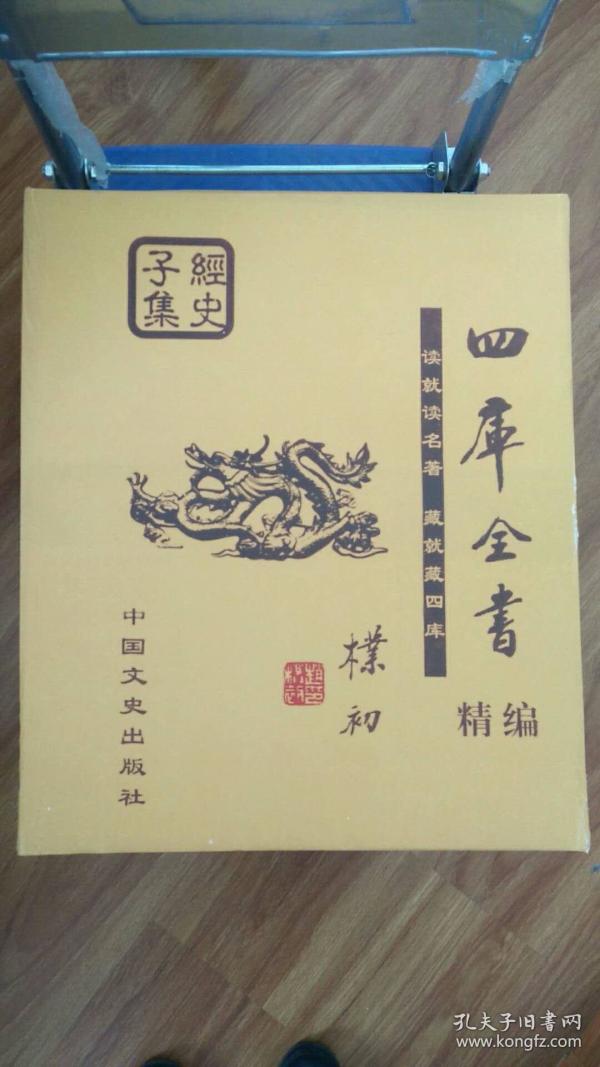 四库全書
精编
读就读名著 藏就藏四库
樸初
經史
子集
中国文史出版社
孔夫子旧书网
www.kongfz.com